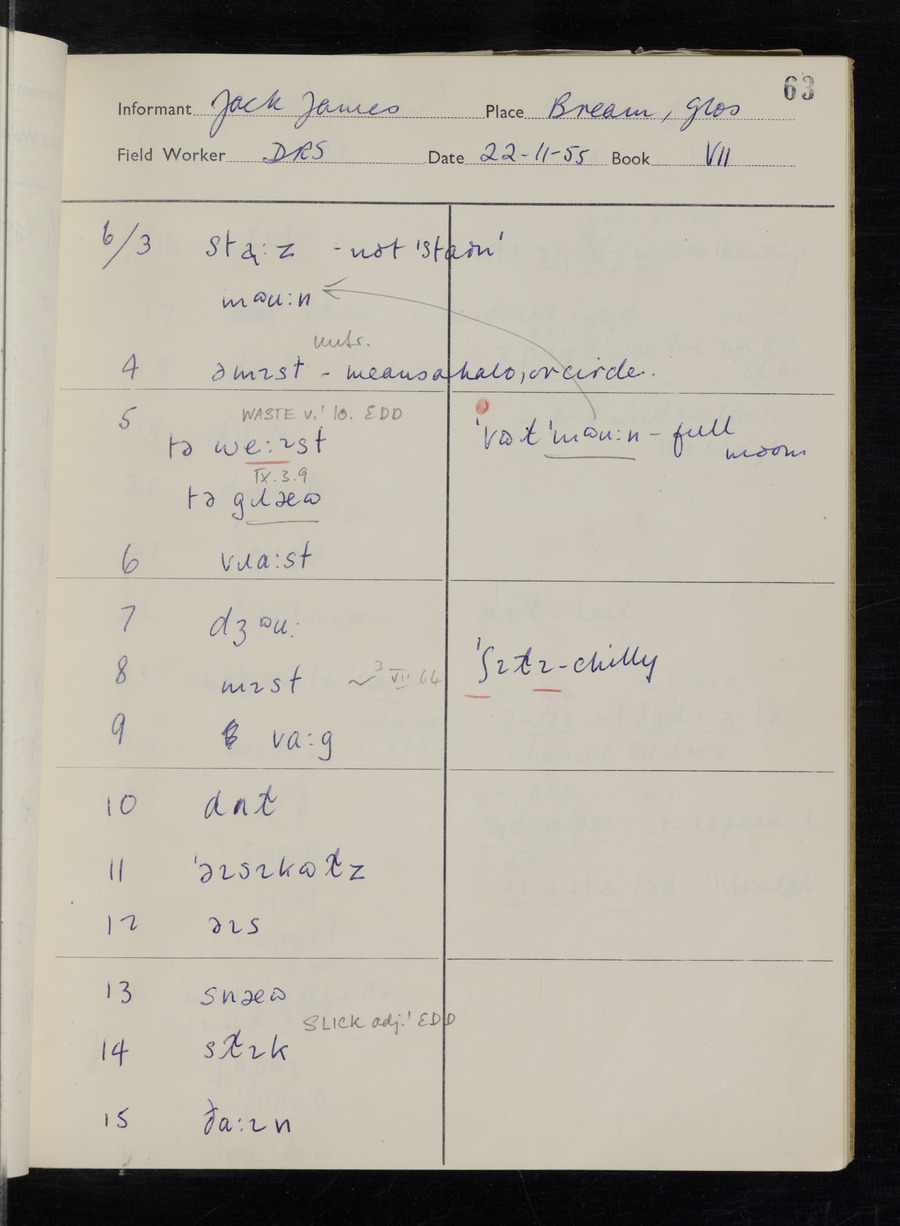 63
Informant Jack James Place Bream, Glos
Field Worker DRS Date 22-11-55 Book VII
6/3 stɑ̨:z - not 'staɔn'
məu:n
4 əmɪst - means a halo, or circle.
5 WASTE v.' 10. EDD
tə we:ɪst
'vʊɫ 'məu:n - full
moon
IX.3.9
tə gɹəʊ
6 vɹɑ:st
7 dʒəu:
8 mɪst 3 VII 64
'ʃɪɫɪ - chilly
9 va:g
10 dɹɫ
11 'əɪsɪkʊɫz
12 əɪs
13 snəʊ
SLICK adj.' EDD
14 sɫɪk
15 ða:ɪn